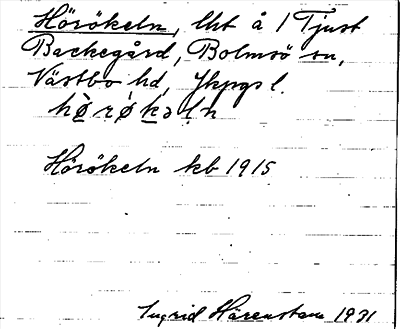 Hörökeln, lht å 1 Tjust
Backegård, Bolmsö sn,
Västbo hd, Jkpgs l.
hø̀røkəln
Hörökeln kb 1915
Ingrid Härenstam 1931